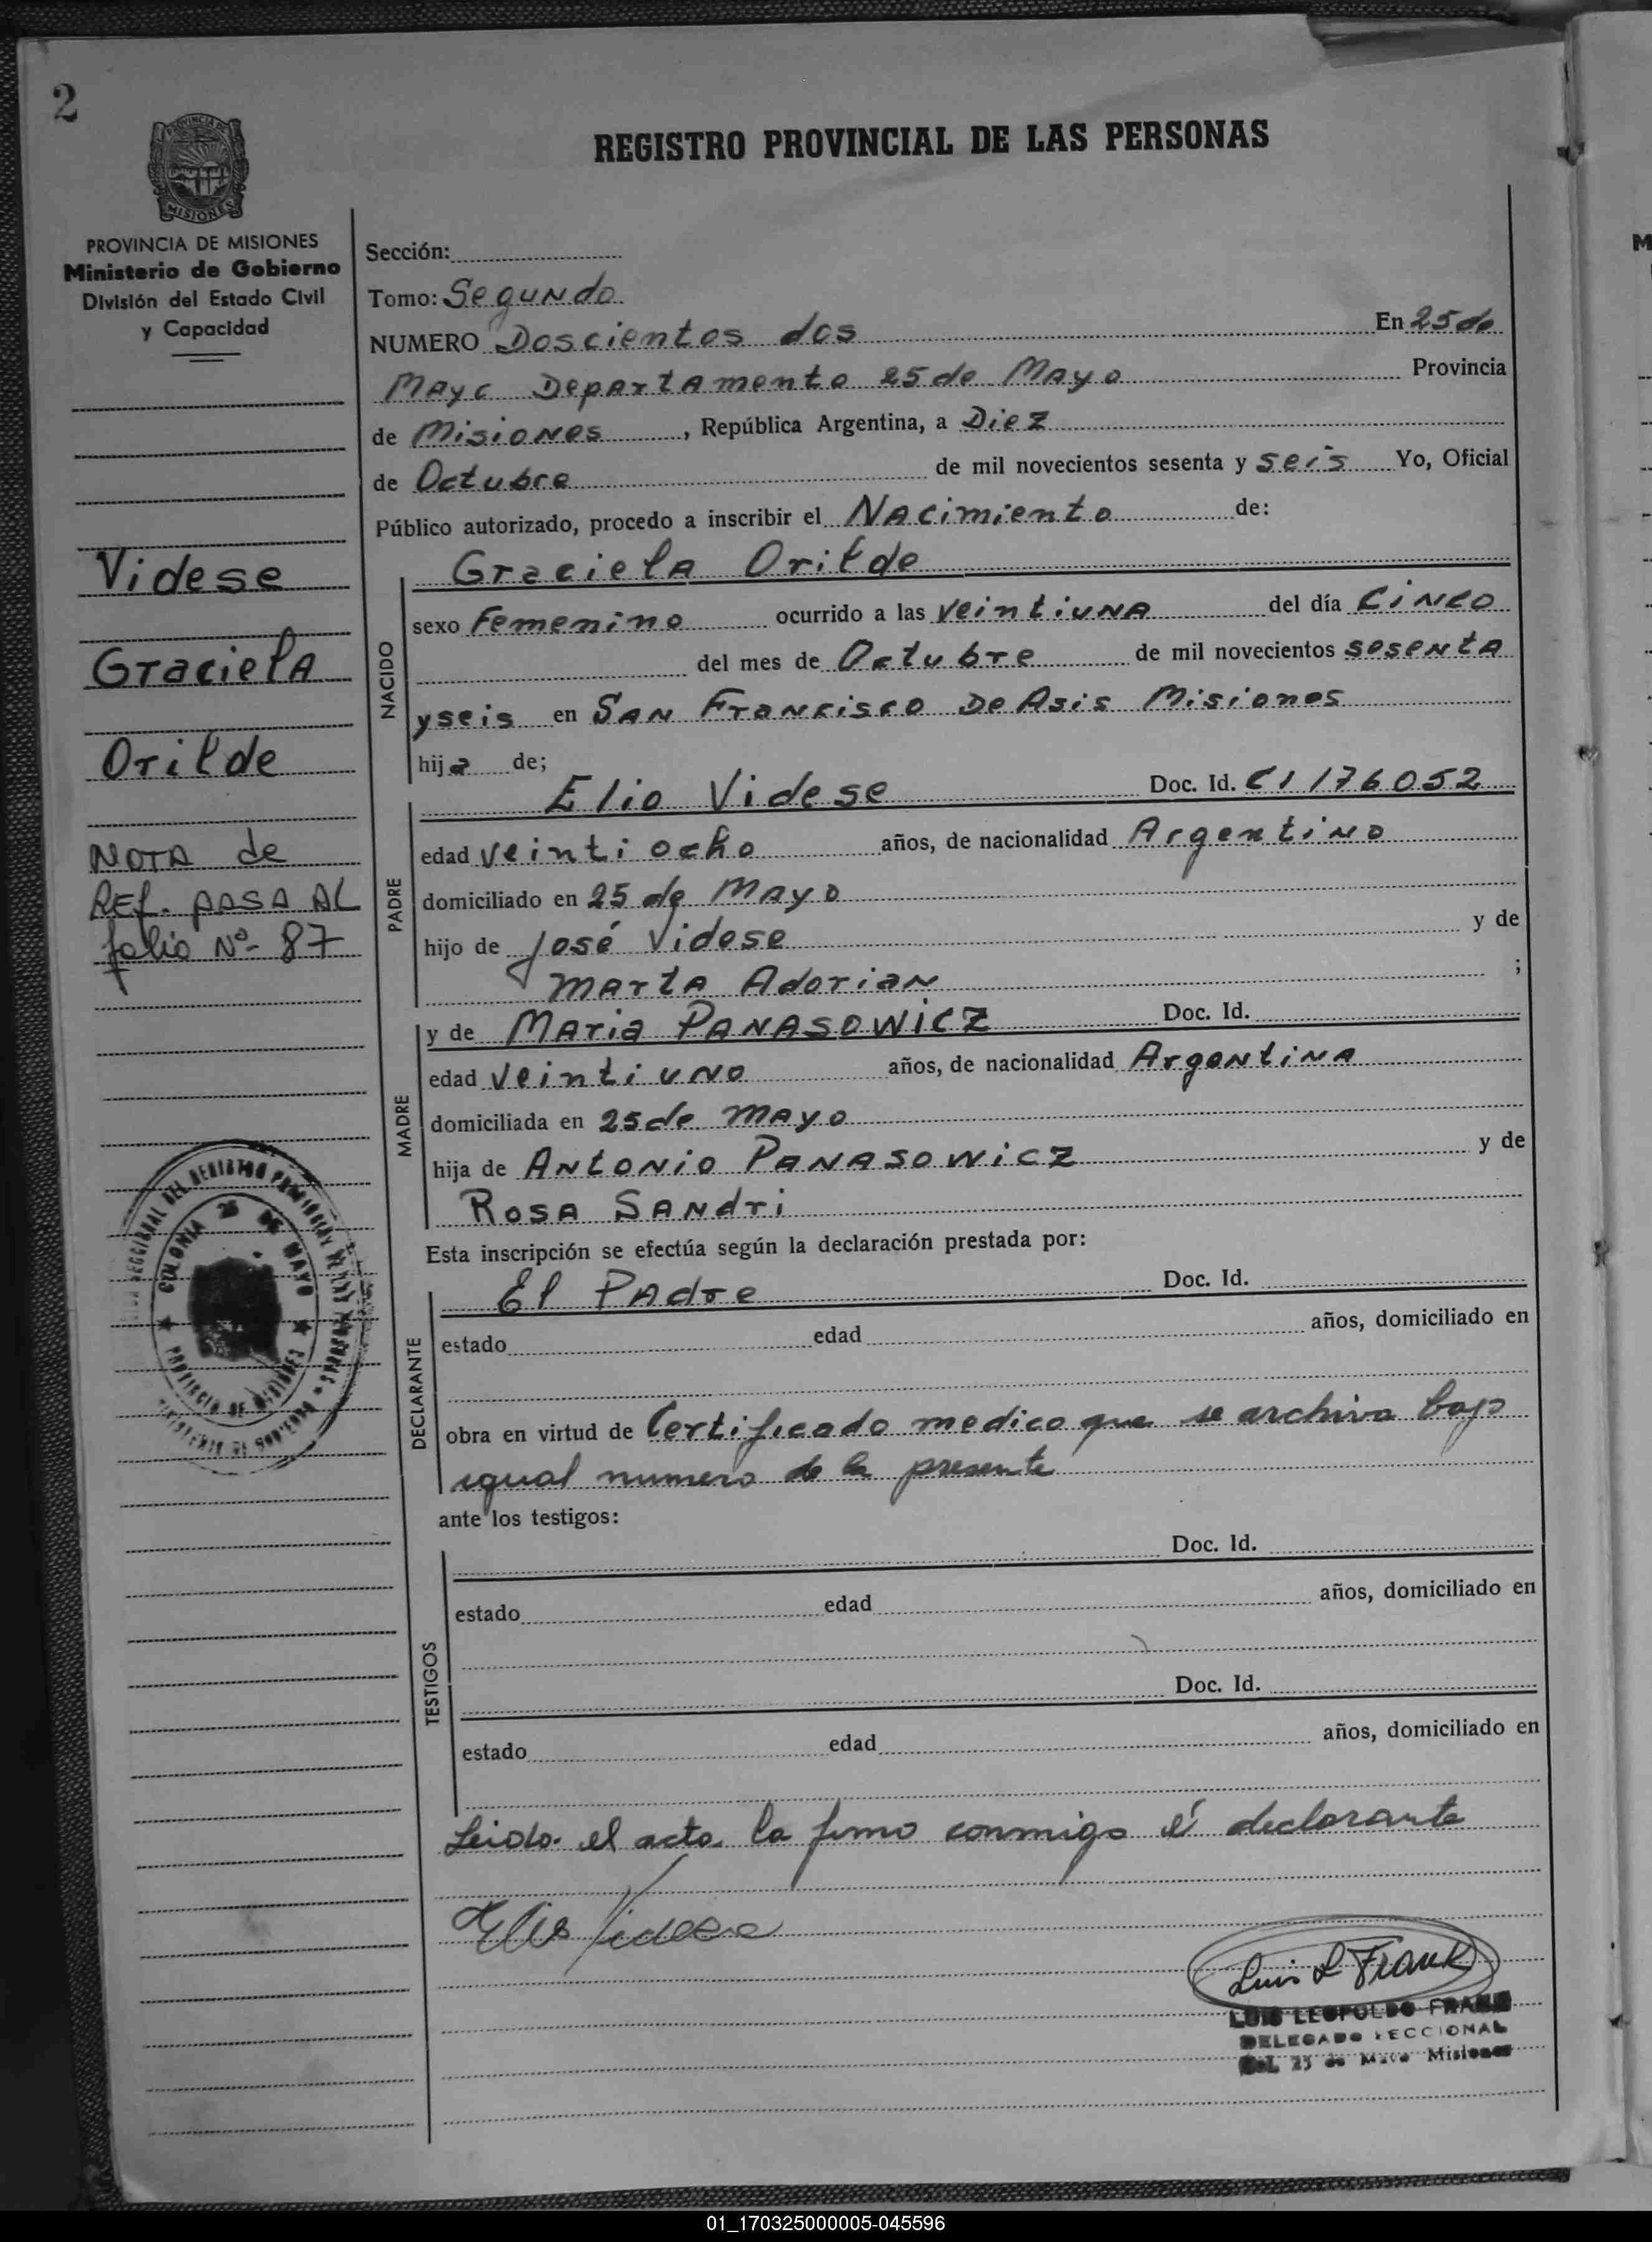 2
PROVINCIA DE
MISIONES
PROVINCIA DE MISIONES
Ministerio de Gobierno
División del Estado Civil
y Capacidad
Videse
Graciela
Orilde
NOTA de
REf. PASA AL
folio Nº- 87
COLONIA 25 DE MAYO
PROVINCIA DE MISIONES
REGISTRO PROVINCIAL DE LAS PERSONAS
Sección:
Tomo: Segundo
NUMERO Doscientos dos En 25 de
Mayo Departamento 25 de Mayo Provincia
de Misiones, República Argentina, a Diez
de Octubre de mil novecientos sesenta y seis Yo, Oficial
Público autorizado, procedo a inscribir el Nacimiento de:
Graciela Orilde
NACIDO
sexo Femenino ocurrido a las veintiuna del día Cinco
del mes de Octubre de mil novecientos sesenta
y seis en San Francisco De Asis Misiones
hija de;
Elio Videse Doc. Id. CI 176052
PADRE
edad veinti ocho años, de nacionalidad Argentino
domiciliado en 25 de Mayo
hijo de José Videse y de
Marta Adorian ;
y de Maria Panasowicz Doc. Id.
MADRE
edad veinti uno años, de nacionalidad Argentina
domiciliada en 25 de Mayo
hija de Antonio Panasowicz y de
Rosa Sandri
Esta inscripción se efectúa según la declaración prestada por:
El Padre Doc. Id.
DECLARANTE
estado edad años, domiciliado en
obra en virtud de Certificado medico que se archiva bajo
igual numero de la presente
ante los testigos:
Doc. Id.
TESTIGOS
estado edad años, domiciliado en
Doc. Id.
estado edad años, domiciliado en
Leido el acta la firmo conmigo el declarante
Elio Videse
Luis L Frank
LUIS LEOPOLDO FRANK
DELEGADO SECCIONAL
Col. 25 de Mayo Misiones
01_170325000005-045596